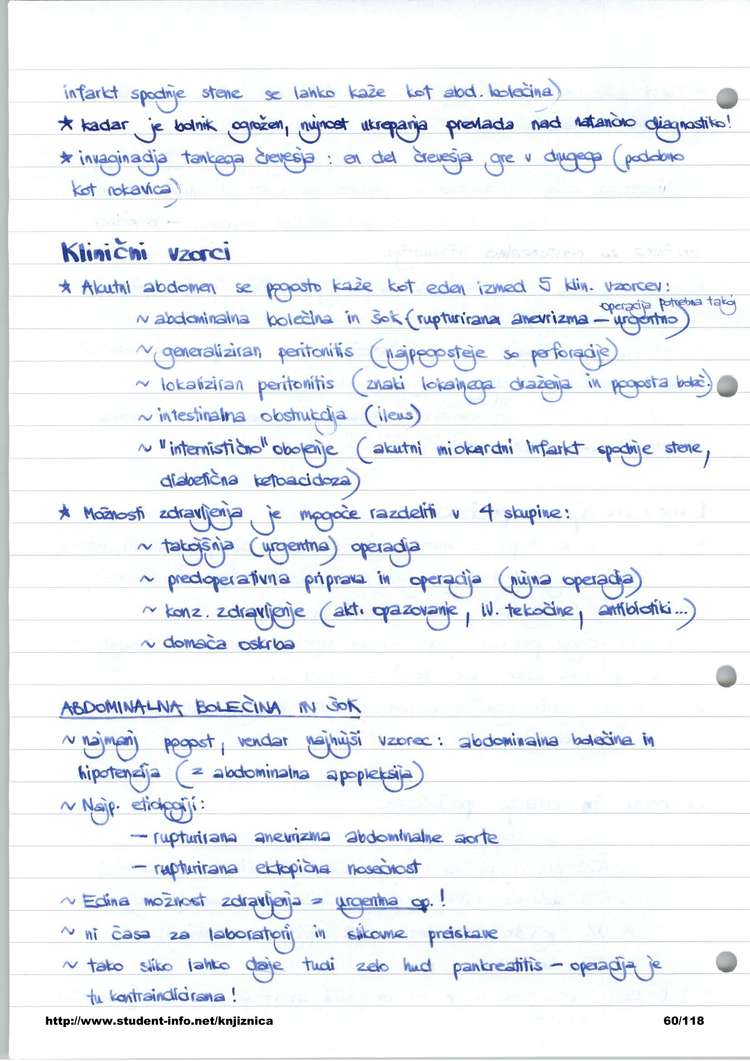 infarkt spodnje stene se lahko kaže kot abd. bolečina)
* kadar je bolnik ogrožen, nujnost ukrepanja prevlada nad natančno diagnostiko!
* invaginacija tankega črevesja : en del črevesja gre v drugega (podobno
kot rokavica)
Klinični vzorci
* Akutni abdomen se pogosto kaže kot eden izmed 5 klin. vzorcev:
operacija potrebna takoj
~ abdominalna bolečina in šok (rupturirana anevrizma – urgentno)
~ generaliziran peritonitis (najpogosteje so perforacije)
~ lokaliziran peritonitis (znaki lokalnega draženja in pogosta boleč.)
~ intestinalna obstrukcija (ileus)
~ "internistično" obolenje (akutni miokardni infarkt spodnje stene,
diabetična ketoacidoza)
* Možnosti zdravljenja je mogoče razdeliti v 4 skupine:
~ takojšnja (urgentna) operacija
~ predoperativna priprava in operacija (nujna operacija)
~ konz. zdravljenje (akt. opazovanje, i.v. tekočine, antibiotiki...)
~ domača oskrba
ABDOMINALNA BOLEČINA IN ŠOK
~ najmanj pogost, vendar najhujši vzorec : abdominalna bolečina in
hipotenzija (= abdominalna apopleksija)
~ Najp. etiologiji:
– rupturirana anevrizma abdominalne aorte
– rupturirana ektopična nosečnost
~ Edina možnost zdravljenja = urgentna op.!
~ ni časa za laboratorij in slikovne preiskave
~ tako sliko lahko daje tudi zelo hud pankreatitis – operacija je
tu kontraindicirana!
http://www.student-info.net/knjiznica 60/118